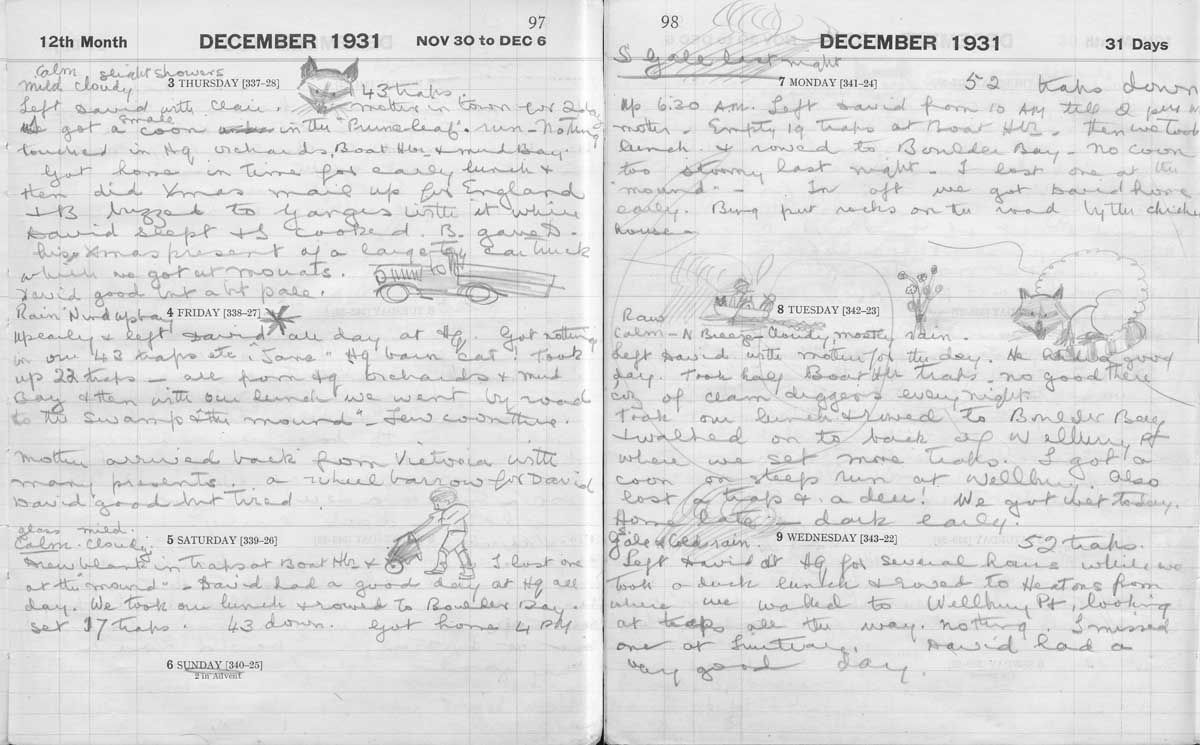 97
12th Month DECEMBER 1931 NOV 30 to DEC 6
Calm slight showers
mild cloudy 3 THURSDAY [337-28] 43 traps.
Left David with Clair. mother in town for 2 days
We got a small coon in the "Pruneleaf" run - Nothing
touched in Hq orchards, Boat Hbr & Mud Bay.
Got home in time for early lunch &
then did Xmas mail up for England
& B buzzed to Ganges with it while
David slept & I cooked. B. gave D.
his Xmas present of a large toy car truck
which we got at Mouats.
David good but a bit pale.
Rain Wind up bay 4 FRIDAY [338-27]
Up early & left David all day at Hq. Got nothing
in our 43 traps etc. "Hq barn cat! Took
up 22 traps - all from Hq orchards & Mud
Bay & then with our lunch we went by road
to the swamp & the "mound" - Few coon there.
Mother arrived back from Victoria with
many presents. a wheel barrow for David
David good but tired.
glass mild.
Calm. Cloudy 5 SATURDAY [339-26]
Drew blank in traps at Boat Hbr & I lost one
at the "mound" - David had a good day at Hq all
day. We took our lunch & rowed to Boulder Bay.
set 17 traps. 43 down. Got home 4 PM
6 SUNDAY [340-25]
2 in Advent
98
DECEMBER 1931 31 Days
S Gale last night
7 MONDAY [341-24] 52 traps down
Up 6.30 AM. Left David from 10 AM till 2 PM
mother. Empty 19 traps at Boat Hbr. then we took
lunch & rowed to Boulder Bay - No coon
too stormy last night. I lost one at the
"mound" - In aft we got David home
early. Bing put rocks on the road by the chicken
house -
Raw 8 TUESDAY [342-23]
Calm - N Breeze Cloudy, mostly rain.
Left David with mother for the day. He had a good
day. Took half Boat Hbr traps - no good there
coz of clam diggers every night
Took our lunch & rowed to Boulder Bay
& walked on to back of Wellbury Pt
where we set more traps. I got a
coon on steep run at Wellbury. Also
lost a trap & a deer! We got wet today.
Home late - dark early.
S. Gale & Cold rain. 9 WEDNESDAY [343-22] 52 traps.
Left David at Hq for several hours while we
took a duck lunch & rowed to Hentons from
where we walked to Wellbury Pt, looking
at traps all the way. nothing. I missed
one at David had a
very good day.